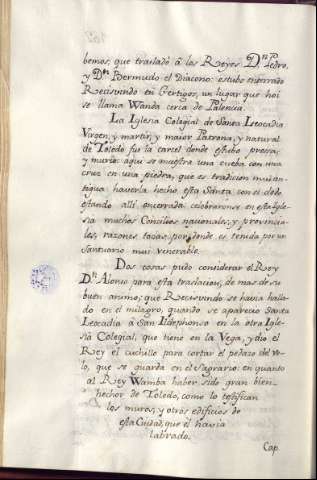 bemos, que trasladó à los Reyes Dn. Pedro,
y Dn. Bermudo el Diacono: estubo enterrado
Recisvindo en Gertigos, un lugar que hoi
se llama Wanda cerca de Palencia.
La Iglesia Colegial de Santa Leocadia
Virgen, y martir, y maior Patrona, y natural
de Toledo fue la carcel donde estubo presa,
y murio: aqui se muestra una cueba con una
cruz en una piedra, que es tradicion mui an-
tigua haverla hecho esta Santa con el dedo
estando alli encerrada celebraronse en esta Igle-
sia muchos Concilios nacionales, y provincia-
les, razones todas por donde es tenida por un
Santuario mui venerable.
Dos cosas pudo considerar el Rey
Dn. Alonso para esta traslacion, de mas de su
buen animo; que Recisvindo se havia halla-
do en el milagro, quando se aparecio Santa
Leocadia à San Ildephonso en la otra Igle-
sia Colegial, que tiene en la Vega, y dio el
Rey el cuchillo para cortar el pedazo del ve-
lo, que se guarda en el Sagrario: en quanto
al Rey Wamba haber sido gran bien-
hechor de Toledo, como lo testifican
los muros, y otros edificios de
esta Ciudad, que èl havia
labrado.
Cap.